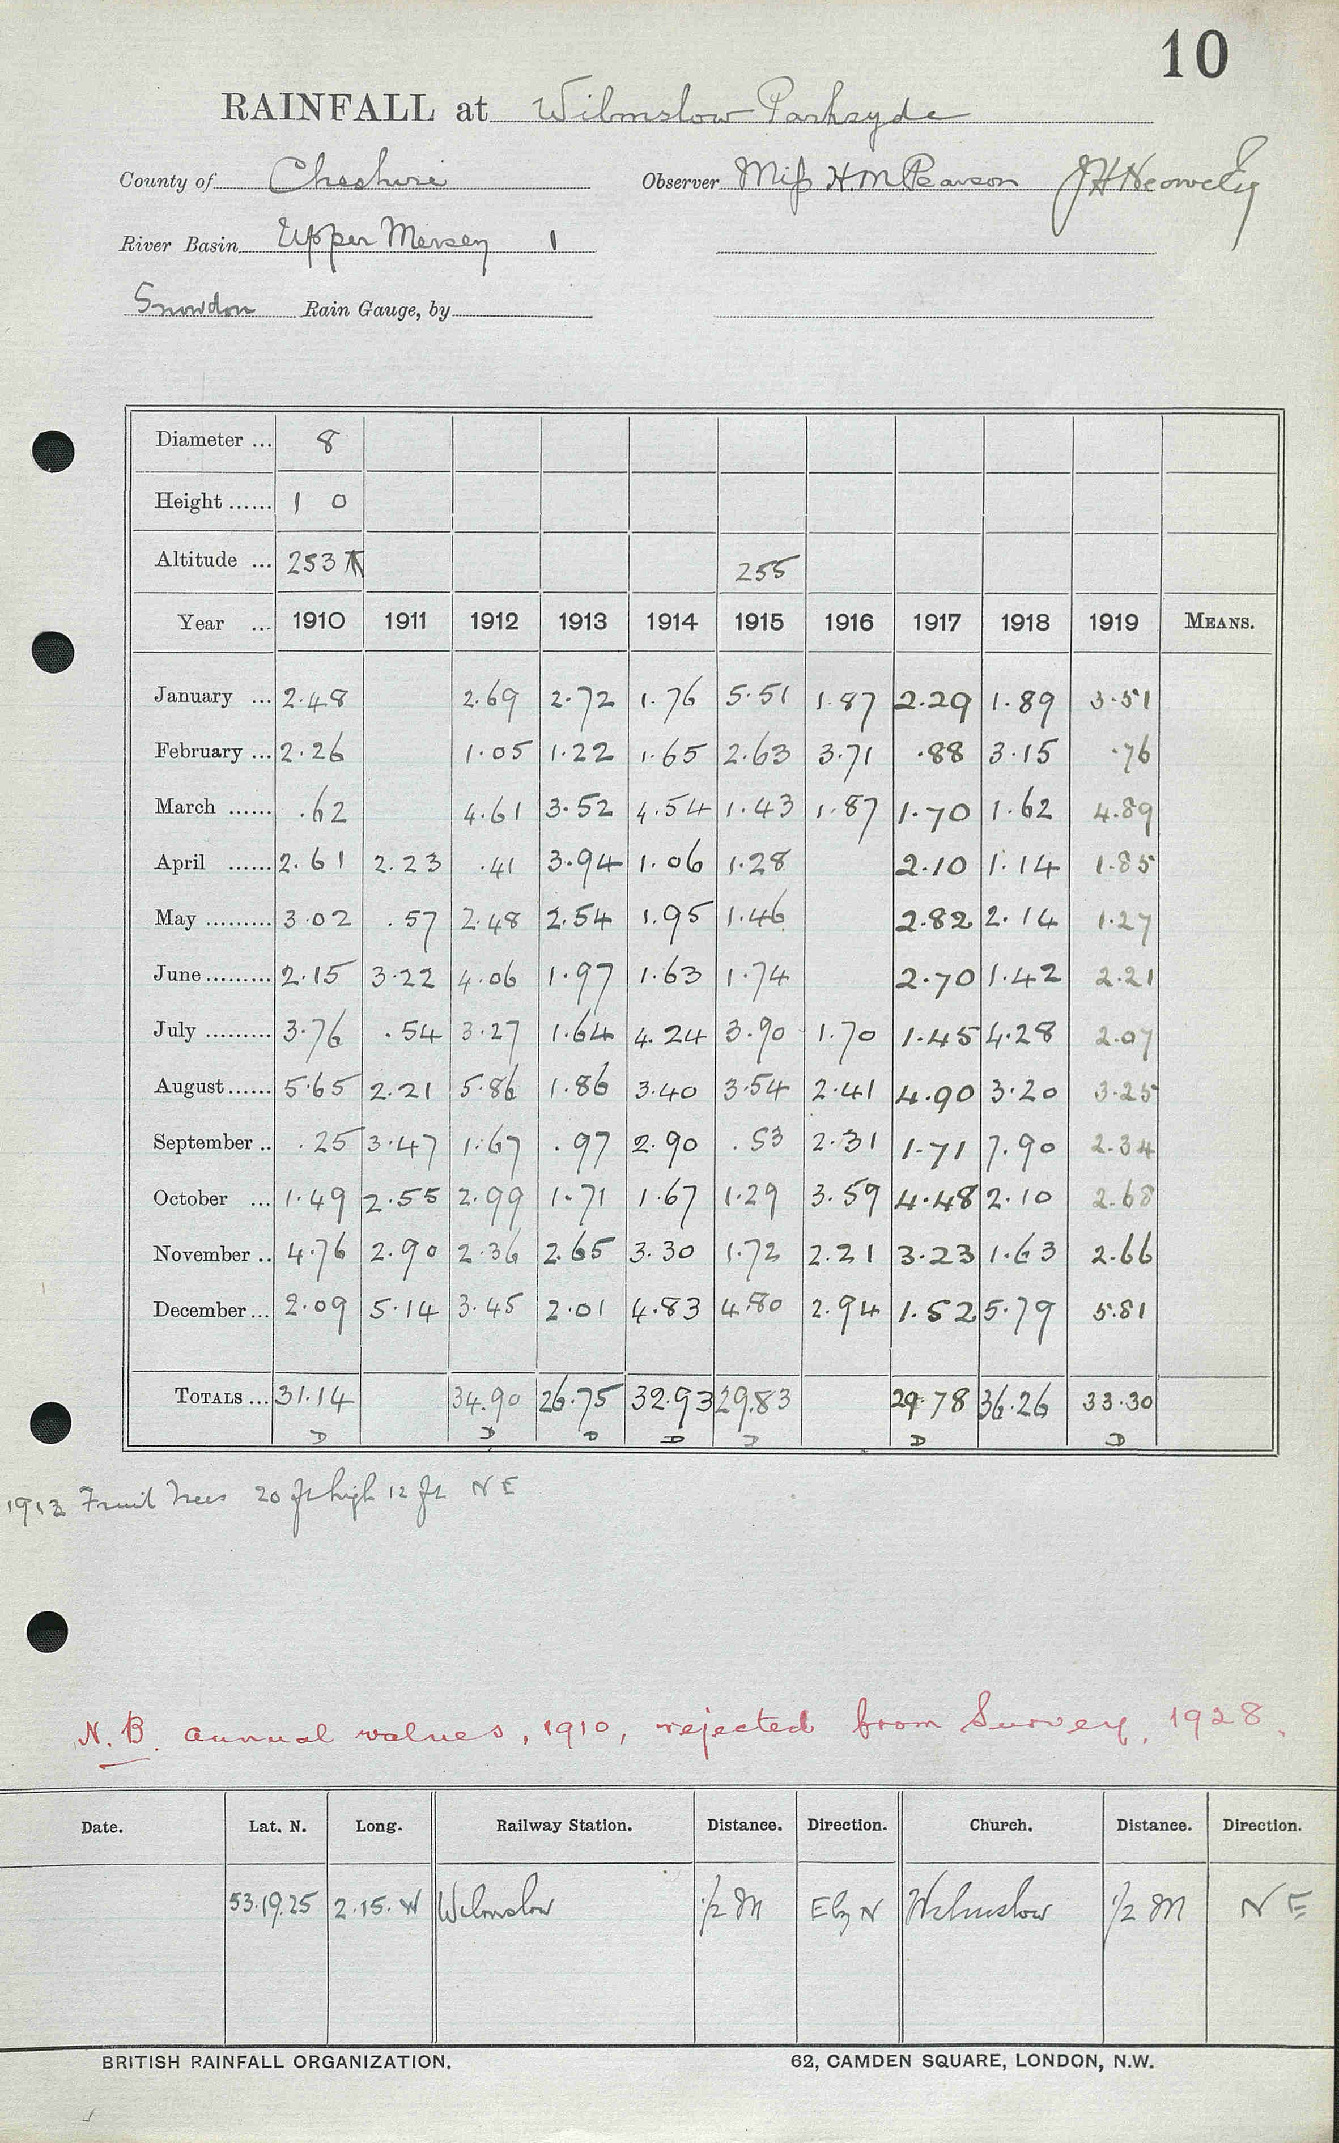 10
RAINFALL at Wilmslow Parksyde
County of Cheshire Observer Miss H M Pearson J H
River Basin Upper Mersey 1
Snowdon Rain Gauge, by
Diameter ... 8
Height ...... 1 0
Altitude ... 253 255
Year ... 1910 1911 1912 1913 1914 1915 1916 1917 1918 1919 MEANS.
January ... 2.48 2.69 2.72 1.76 5.51 1.87 2.29 1.89 3.51
February ... 2.26 1.05 1.22 1.65 2.63 3.71 .88 3.15 .76
March ...... .62 4.61 3.52 4.54 1.43 1.87 1.70 1.62 4.89
April ...... 2.61 2.23 .41 3.94 1.06 1.28 2.10 1.14 1.85
May ......... 3.02 .57 2.48 2.54 1.95 1.46 2.82 2.14 1.27
June ......... 2.15 3.22 4.06 1.97 1.63 1.74 2.70 1.42 2.21
July ......... 3.76 .54 3.27 1.64 4.24 3.90 1.70 1.45 4.28 2.07
August ...... 5.65 2.21 5.86 1.86 3.40 3.54 2.41 4.90 3.20 3.25
September .. .25 3.47 1.67 .97 2.90 .53 2.31 1.71 7.90 2.34
October ... 1.49 2.55 2.99 1.71 1.67 1.29 3.59 4.48 2.10 2.68
November .. 4.76 2.90 2.36 2.65 3.30 1.72 2.21 3.23 1.63 2.66
December ... 2.09 5.14 3.45 2.01 4.83 4.80 2.94 1.52 5.79 5.81
TOTALS ... 31.14 34.90 26.75 32.93 29.83 29.78 36.26 33.30
D D D D D D D
1913 Fruit trees 20 ft high 12 ft N E
N.B. annual values, 1910, rejected from Survey, 1928.
Date. Lat. N. Long. Railway Station. Distance. Direction. Church. Distance. Direction.
53.19.25 2.15.W Wilmslow 1/2 M E by N Wilmslow 1/2 M N E
BRITISH RAINFALL ORGANIZATION. 62, CAMDEN SQUARE, LONDON, N.W.